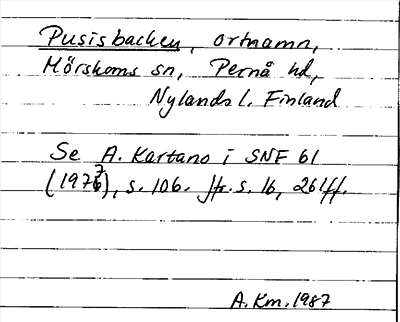 Pusisbacken, ortnamn,
Mörskoms sn, Pernå hd,
Nylands l. Finland
Se A. Kartano i SNF 61
(1977), s. 106. Jfr. s. 16, 261ff.
A.Km.1987